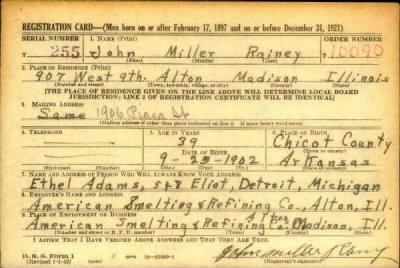 REGISTRATION CARD—(Men born on or after February 17, 1897 and on or before December 31, 1921)
SERIAL NUMBER 1. NAME (Print) ORDER NUMBER
255 John Miller Rainey 10090
(First) (Middle) (Last)
2. PLACE OF RESIDENCE (Print)
907 West 9th. Alton Madison Illinois
(Number and street) (Town, township, village, or city) (County) (State)
[THE PLACE OF RESIDENCE GIVEN ON THE LINE ABOVE WILL DETERMINE LOCAL BOARD
JURISDICTION; LINE 2 OF REGISTRATION CERTIFICATE WILL BE IDENTICAL]
3. MAILING ADDRESS
Same 1906 St
[Mailing address if other than place indicated on line 2. If same insert word same]
4. TELEPHONE 5. AGE IN YEARS 6. PLACE OF BIRTH
39 Chicot County
DATE OF BIRTH (Town or county)
9-25-1902 Arkansas
(Exchange) (Number) (Mo.) (Day) (Yr.) (State or country)
7. NAME AND ADDRESS OF PERSON WHO WILL ALWAYS KNOW YOUR ADDRESS
Ethel Adams, 548 Eliot, Detroit, Michigan
8. EMPLOYER'S NAME AND ADDRESS
American Smelting & Refining Co., Alton, Ill.
9. PLACE OF EMPLOYMENT OR BUSINESS
American Smelting & Refining Co. Alton Madison, Ill.
(Number and street or R. F. D. number) (Town) (County) (State)
I AFFIRM THAT I HAVE VERIFIED ABOVE ANSWERS AND THAT THEY ARE TRUE.
D. S. S. Form 1
(Revised 1-1-42) (over)
John miller